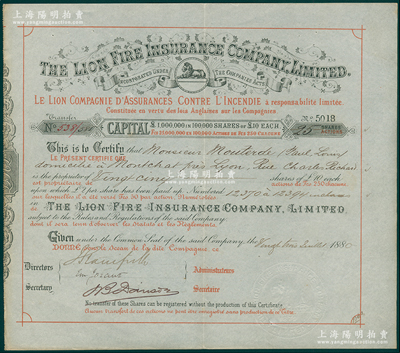 上海陽明拍賣
www.yangmingauction.com
THE LION FIRE INSURANCE COMPANY, LIMITED.
INCORPORATED UNDER THE COMPANIES ACTS
LE LION COMPAGNIE D'ASSURANCES CONTRE L'INCENDIE à responsabilité limitée.
Constituée en vertu des lois Anglaises sur les Compagnies
Transfer Nº 5018
CAPITAL £1,000,000 in 100,000 SHARES of £10 EACH. 25 SHARES ACTIONS
Fr 25,000,000 en 100,000 ACTIONS de Frs 250 CHACUNE
This is to Certify that Monsieur Mouterde (Paul Louis)
LE PRÉSENT CERTIFIE QUE
domicilié à Montchat près Lyon, Rue Charles Richard
is the proprietor of Vingt cinq shares of £10 each
est propriétaire de actions de Frs 250 chacune
upon which £ per share has been paid up. Numbered 12370 à 12394 inclus
sur lesquelles il a été versé Frs par action. Numérotées
in THE LION FIRE INSURANCE COMPANY, LIMITED,
subject to the Rules and Regulations of the said Company.
dont il est sujet aux Statuts et les Règlements.
Given under the Common Seal of the said Company, the 1880
DONNÉ sous le Sceau de la dite Compagnie ce
Directors Administrateurs
Secretary Secrétaire
No transfer of these Shares can be registered without the production of this Certificate.
Aucun transfert de ces actions ne peut être enregistré sans production de ce titre.
上海陽明拍賣